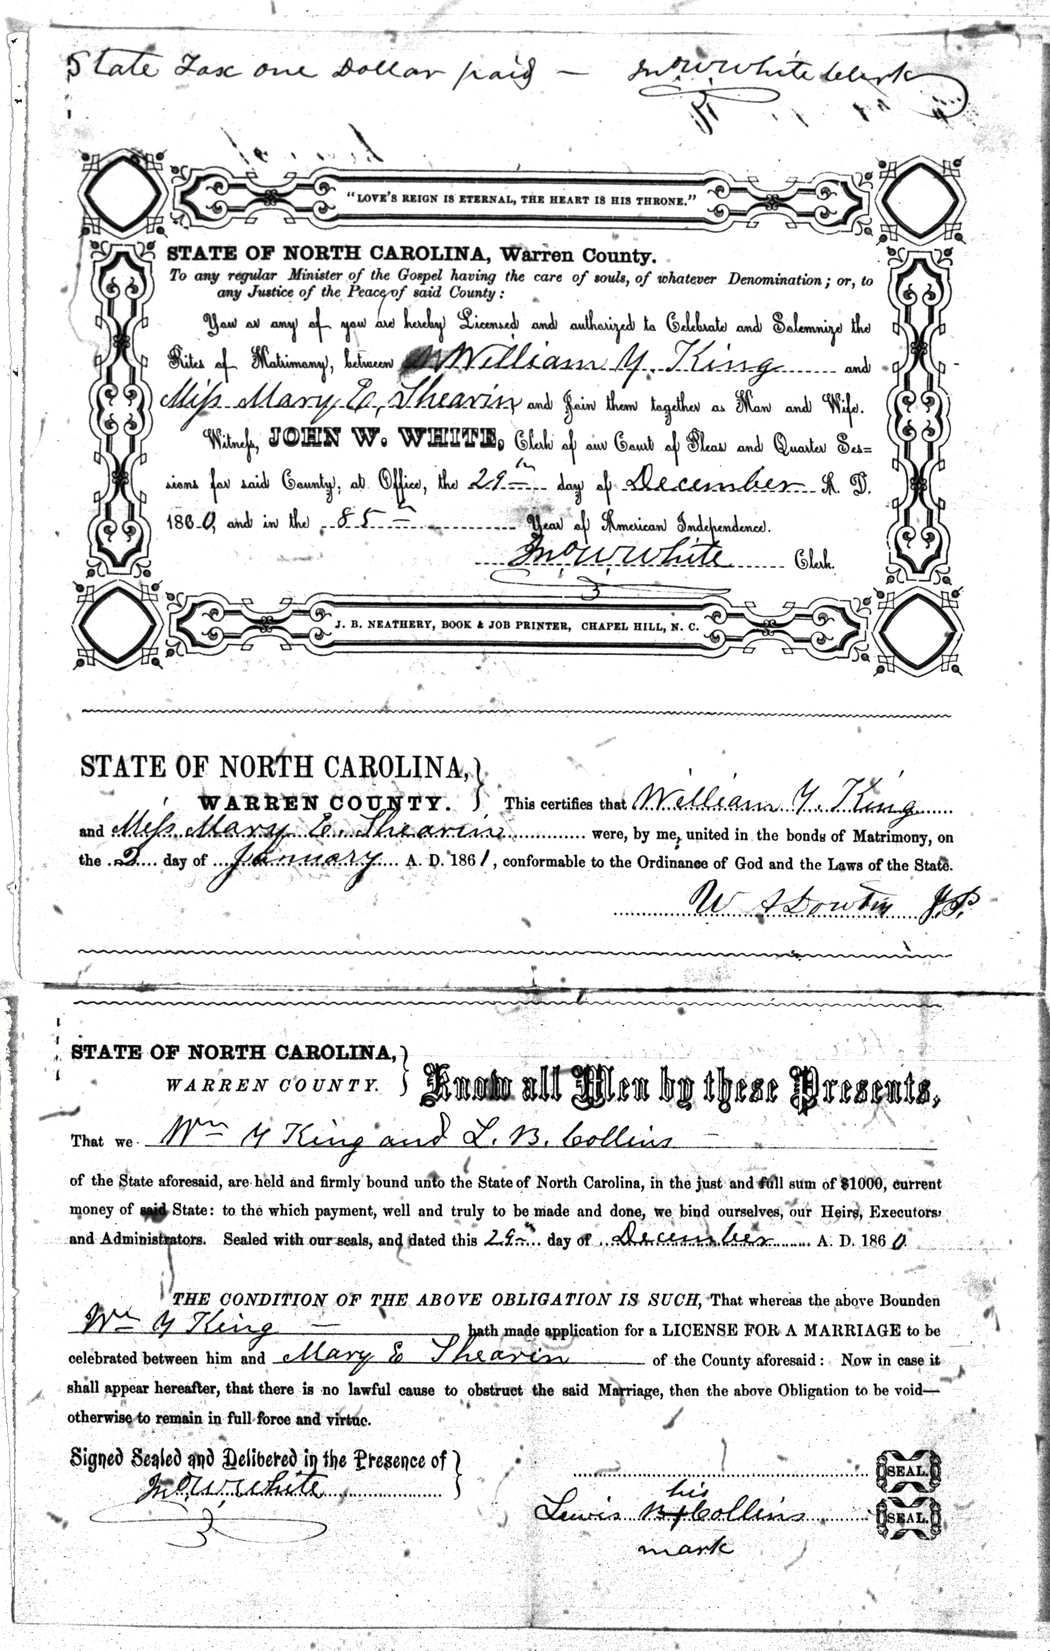 State Tax one Dollar paid — Jno W White Clerk
"LOVE'S REIGN IS ETERNAL, THE HEART IS HIS THRONE."
STATE OF NORTH CAROLINA, Warren County.
To any regular Minister of the Gospel having the care of souls, of whatever Denomination; or, to
any Justice of the Peace of said County:
You or any of you are hereby Licensed and authorized to Celebrate and Solemnize the
Rites of Matrimony, between William Y. King and
Miss Mary E. Shearin, and Join them together as Man and Wife.
Witness, JOHN W. WHITE, Clerk of our Court of Pleas and Quarter Ses=
sions for said County, at Office, the 29th day of December A. D.
1860, and in the 85th Year of American Independence.
Jno W. White Clerk.
J. B. NEATHERY, BOOK & JOB PRINTER, CHAPEL HILL, N. C.
STATE OF NORTH CAROLINA,
WARREN COUNTY. } This certifies that William Y. King
and Miss Mary E. Shearin were, by me, united in the bonds of Matrimony, on
the 2 day of January A. D. 1861, conformable to the Ordinance of God and the Laws of the State.
W A Dowtin J.P.
STATE OF NORTH CAROLINA,
WARREN COUNTY. } Know all Men by these Presents,
That we Wm Y King and L. B. Collins
of the State aforesaid, are held and firmly bound unto the State of North Carolina, in the just and full sum of $1000, current
money of said State: to the which payment, well and truly to be made and done, we bind ourselves, our Heirs, Executors
and Administrators. Sealed with our seals, and dated this 29th day of December A. D. 1860
THE CONDITION OF THE ABOVE OBLIGATION IS SUCH, That whereas the above Bounden
Wm Y King — hath made application for a LICENSE FOR A MARRIAGE to be
celebrated between him and Mary E Shearin of the County aforesaid: Now in case it
shall appear hereafter, that there is no lawful cause to obstruct the said Marriage, then the above Obligation to be void—
otherwise to remain in full force and virtue.
Signed Sealed and Delibered in the Presence of }
SEAL.
Jno W. White
his
Lewis B X Collins SEAL.
mark